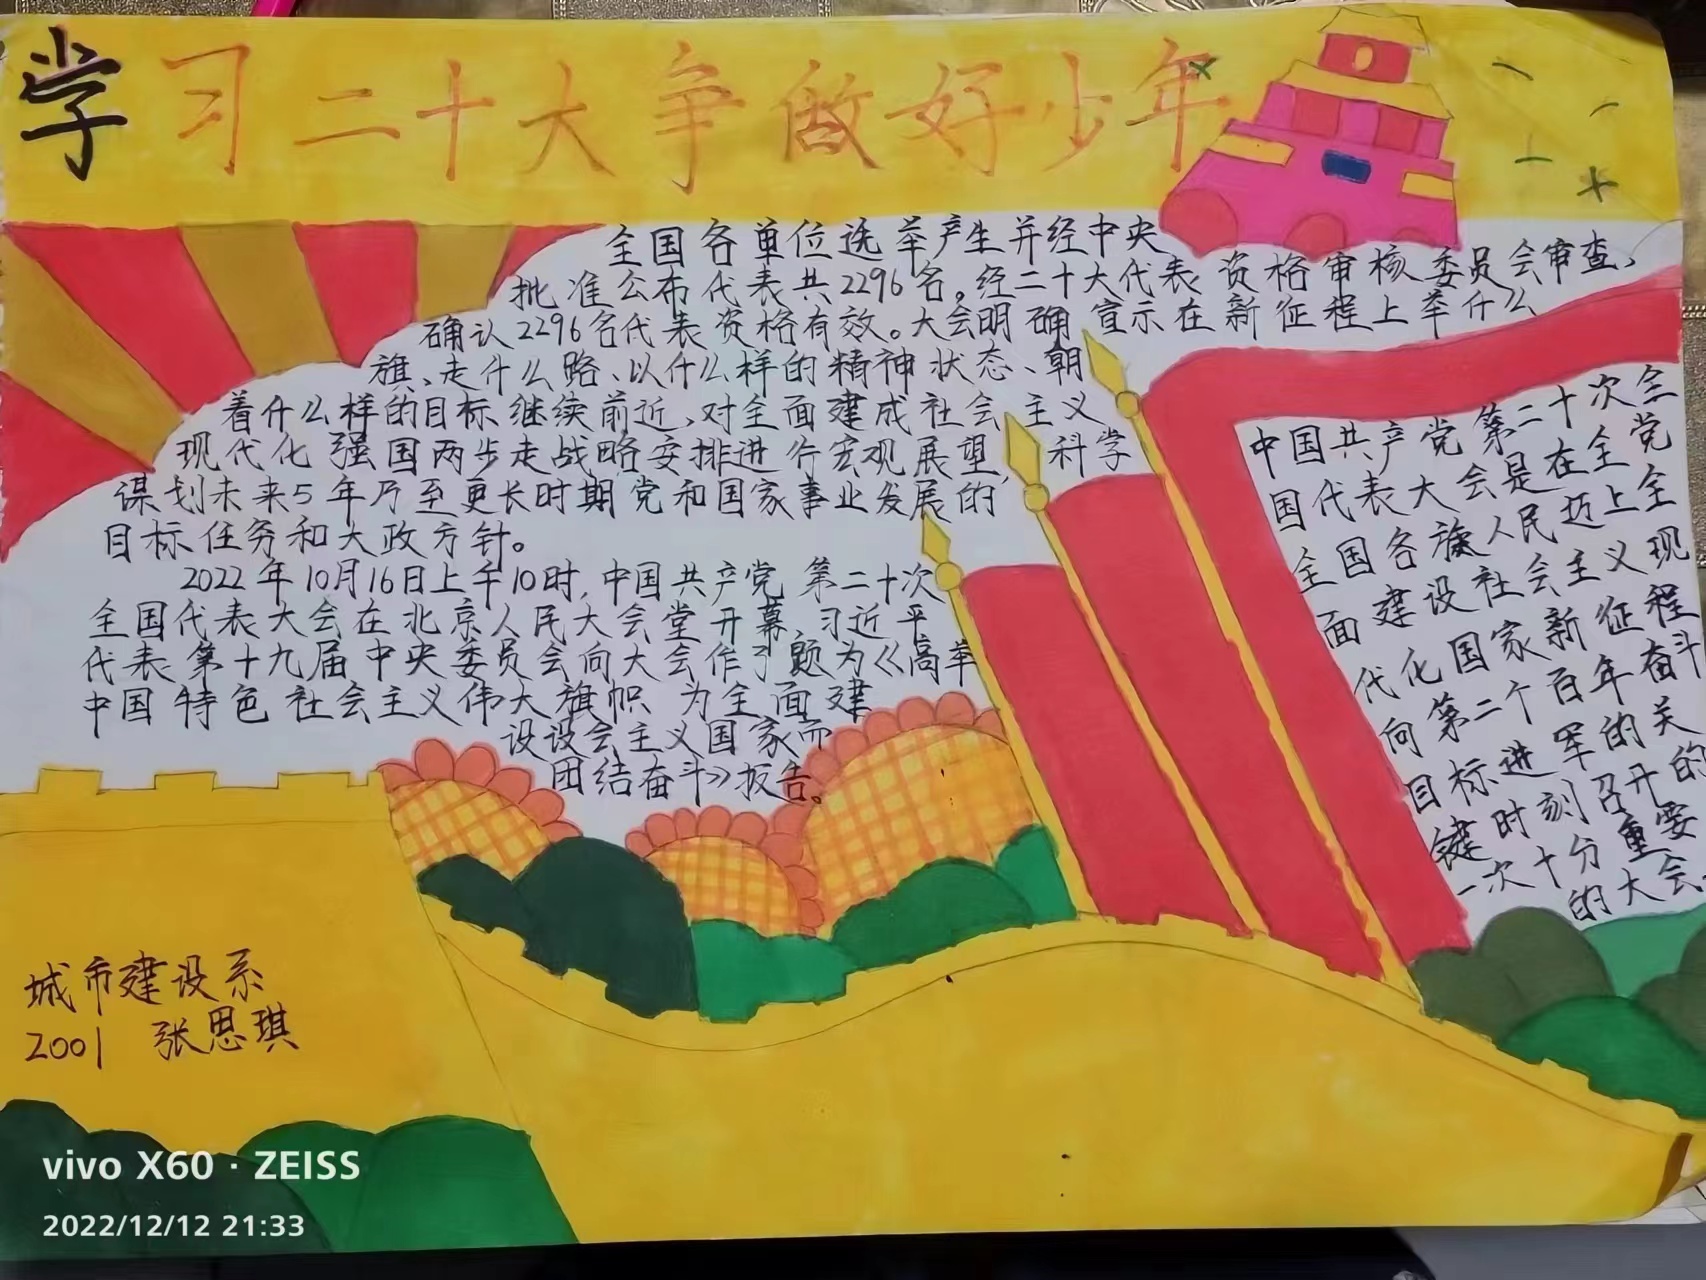 学习二十大争做好少年
全国各单位选举产生并经中央
批准公布代表共2296名。经二十大代表资格审核委员会审查,
确认2296名代表资格有效。大会明确宣示在新征程上举什么
旗、走什么路、以什么样的精神状态、朝
着什么样的目标继续前进,对全面建成社会主义
现代化强国两步走战略安排进行宏观展望,科学
谋划未来5年乃至更长时期党和国家事业发展的
目标任务和大政方针。
2022年10月16日上午10时,中国共产党第二十次
全国代表大会在北京人民大会堂开幕,习近平
代表第十九届中央委员会向大会作了题为《高举
中国特色社会主义伟大旗帜 为全面建
设设会主义国家而
团结奋斗》报告。
中国共产党第二十次全
国代表大会是在全党
全国各族人民迈上全
面建设社会主义现
代化国家新征程
向第二个百年奋斗
目标进军的关
键时刻召开的
一次十分重要
的大会.
城市建设系
2001 张思琪
vivo X60 · ZEISS
2022/12/12 21:33